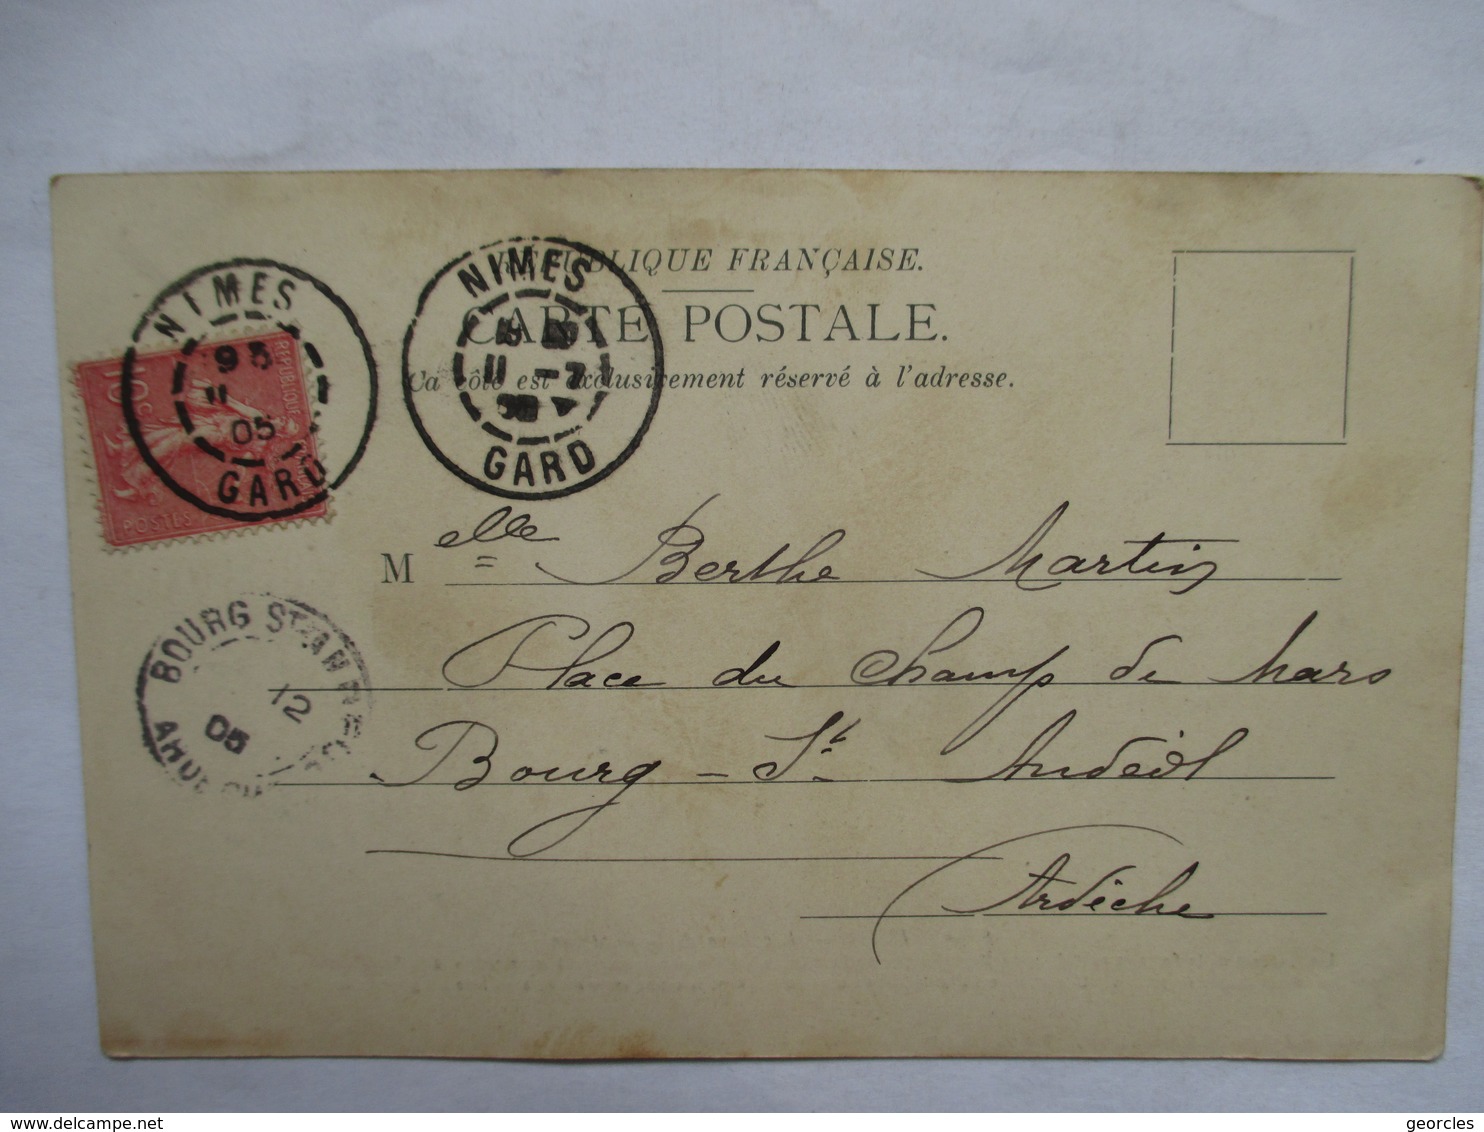 RÉPUBLIQUE FRANÇAISE.
CARTE POSTALE.
Ce côté est exclusivement réservé à l'adresse.
NIMES
11
05
GARD
NIMES
11
GARD
REPUBLIQUE
10c
POSTES
Melle Berthe Martin
Place du Champ de Mars
Bourg-St Andéol
Ardèche
BOURG ST ANDEOL
12
05
ARDECHE
delcampe.net
georcles